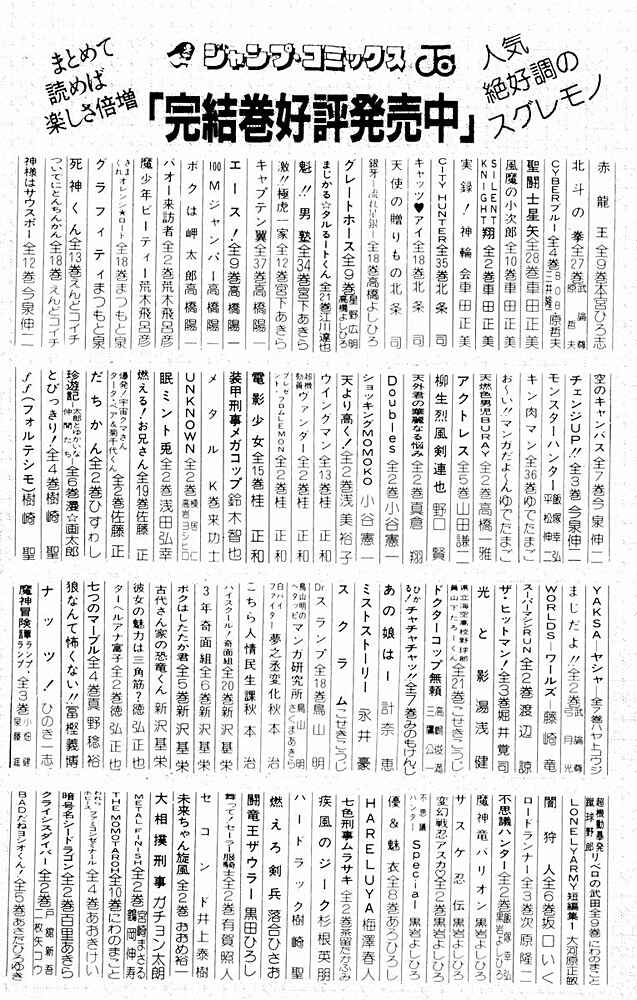 まとめて
読めば
楽しさ倍増
ジャンプ・コミックス
人気
絶好調の
スグレモノ
「完結巻好評発売中」
赤龍王 全9巻 本宮ひろ志
北斗の拳 全27巻 武論尊 原哲夫
CYBERブルー 全4巻 BOB 三井隆一 原哲夫
聖闘士星矢 全28巻 車田正美
風魔の小次郎 全10巻 車田正美
SILENT KNIGHT翔 全2巻 車田正美
実録!神輪会 車田正美
CITY HUNTER 全35巻 北条司
キャッツ♥アイ 全18巻 北条司
天使の贈りもの 北条司
銀牙―流れ星 銀― 全18巻 高橋よしひろ
グレートホース 全9巻 星野広明 高橋よしひろ
まじかる☆タルるートくん 全21巻 江川達也
魁!!男塾 全34巻 宮下あきら
激!!極虎一家 全12巻 宮下あきら
キャプテン翼 全37巻 高橋陽一
エース! 全9巻 高橋陽一
100Mジャンパー 高橋陽一
ボクは岬太郎 高橋陽一
バオー来訪者 全2巻 荒木飛呂彦
魔少年ビーティー 荒木飛呂彦
きまぐれオレンジ★ロード 全18巻 まつもと泉
グラフィティ まつもと泉
死神くん 全13巻 えんどコイチ
ついでにとんちんかん 全18巻 えんどコイチ
神様はサウスポー 全12巻 今泉伸二
空のキャンバス 全7巻 今泉伸二
チェンジUP!! 全3巻 今泉伸二
モンスターハンター 飯塚幸弘 平松伸二
キン肉マン 全36巻 ゆでたまご
おくーい!!マンガだよくん ゆでたまご
天燃色男児BURAY 全2巻 高橋一雅
アクトレス 全5巻 山田謙二
柳生烈風剣連也 野口賢
天外君の華麗なる悩み 全2巻 真倉翔
Doubles 全2巻 真倉翔
ショッキングMOMOKO 小谷憲一
天より高く! 全2巻 浅美裕子
ウイングマン 全13巻 桂正和
超機動員ヴァンダー 全2巻 桂正和
プレゼント・フロムLEMON 全2巻 桂正和
電影少女 全15巻 桂正和
装甲刑事メガコップ 鈴木智也
メタルK 巻来功士
UNKNOWN 全2巻 高岩ヨシヒロ
眠兎 全2巻 浅田弘幸
燃える!お兄さん 全19巻 佐藤正
爆発!宇宙クマさん 全2巻 佐藤正
だちかん 全2巻 ひすわし
珍遊記―太郎とゆかいな仲間たち― 全6巻 漫☆画太郎
とびっきり! 全4巻 樹崎聖
ff(フォルテシモ) 樹崎聖
YAKSA―ヤシャ― 全7巻 ハヤトコウジ
まじだよ!! 全2巻 武論尊 弓月光
WORLDS―ワールズ― 藤崎竜
スーパーマシンRUN 全2巻 渡辺諒
ザ・ヒットマン! 全3巻 堀井覚司
光と影 湯浅健二
県立海空高校野球部員山下たろーくん 全21巻 こせきこうじ
ドクターコップ無頼 高嶋栄満 三鷹公一
ひかる!チャチャチャッ!! 全7巻 みのもけんじ
あの娘は― 計奈恵
ミストストーリー 永井豪
スクラム こせきこうじ
Dr.スランプ 全18巻 鳥山明
鳥山明のヘタッピマンガ研究所 鳥山明 さくまあきら
白バイファイター 夢之丞変化 秋本治
こちら人情民生課 秋本治
ハイスクール!奇面組 全20巻 新沢基栄
3年奇面組 全6巻 新沢基栄
ボクはしたたか君 全5巻 新沢基栄
古代さん家の恐竜くん 新沢基栄
彼女の魅力は三角筋? 徳弘正也
ターヘルアナ富子 全2巻 徳弘正也
七つのマーブル 全4巻 真野稔裕
狼なんて怖くない!! 冨樫義博
ナッツ! ひのき一志
魔神冒険譚ランプ・ランプ 全3巻 小畑健 泉藤進
超機動暴発蹴球野郎リベロの武田 全9巻 にわのまこと
LONELY ARMY短編集1 大河原正敏
闇狩人 全6巻 坂口いく
ロードランナー 全3巻 次原隆二
不思議ハンター 全2巻 飯塚幸弘 黒岩よしひろ
魔神竜バリオン 黒岩よしひろ
サスケ忍伝 黒岩よしひろ
変幻戦忍アスカ♡ 全2巻 黒岩よしひろ
不思議ハンターSpecial 黒岩よしひろ
優&魅衣 全8巻 あろひろし
HARELUYA 梅澤春人
七色刑事ムラサキ 全2巻 茶留たかふみ
疾風のジーク 杉根英朋
ハードラック 樹崎聖
燃えろ剣兵 落合ひさお
闘竜王ザウラー 黒田ひろし
舞って!セーラー服騎士 全2巻 有賀照人
セコンド 井上泰樹
未来ちゃん旋風 全2巻 おおめ裕一
大相撲刑事 ガチョン太朗
METAL FINISH 全2巻 宮崎まさる 鶴岡伸寿
THE MOMOTAROH 全10巻 にわのまこと
全4巻 あおきけい
暗号名シードラゴン 全2巻 百里あきら
クライシスダイバー 全2巻 戸舘新吾 二枚矢コウ
BADだねヨシオくん! 全5巻 あさだひろゆき